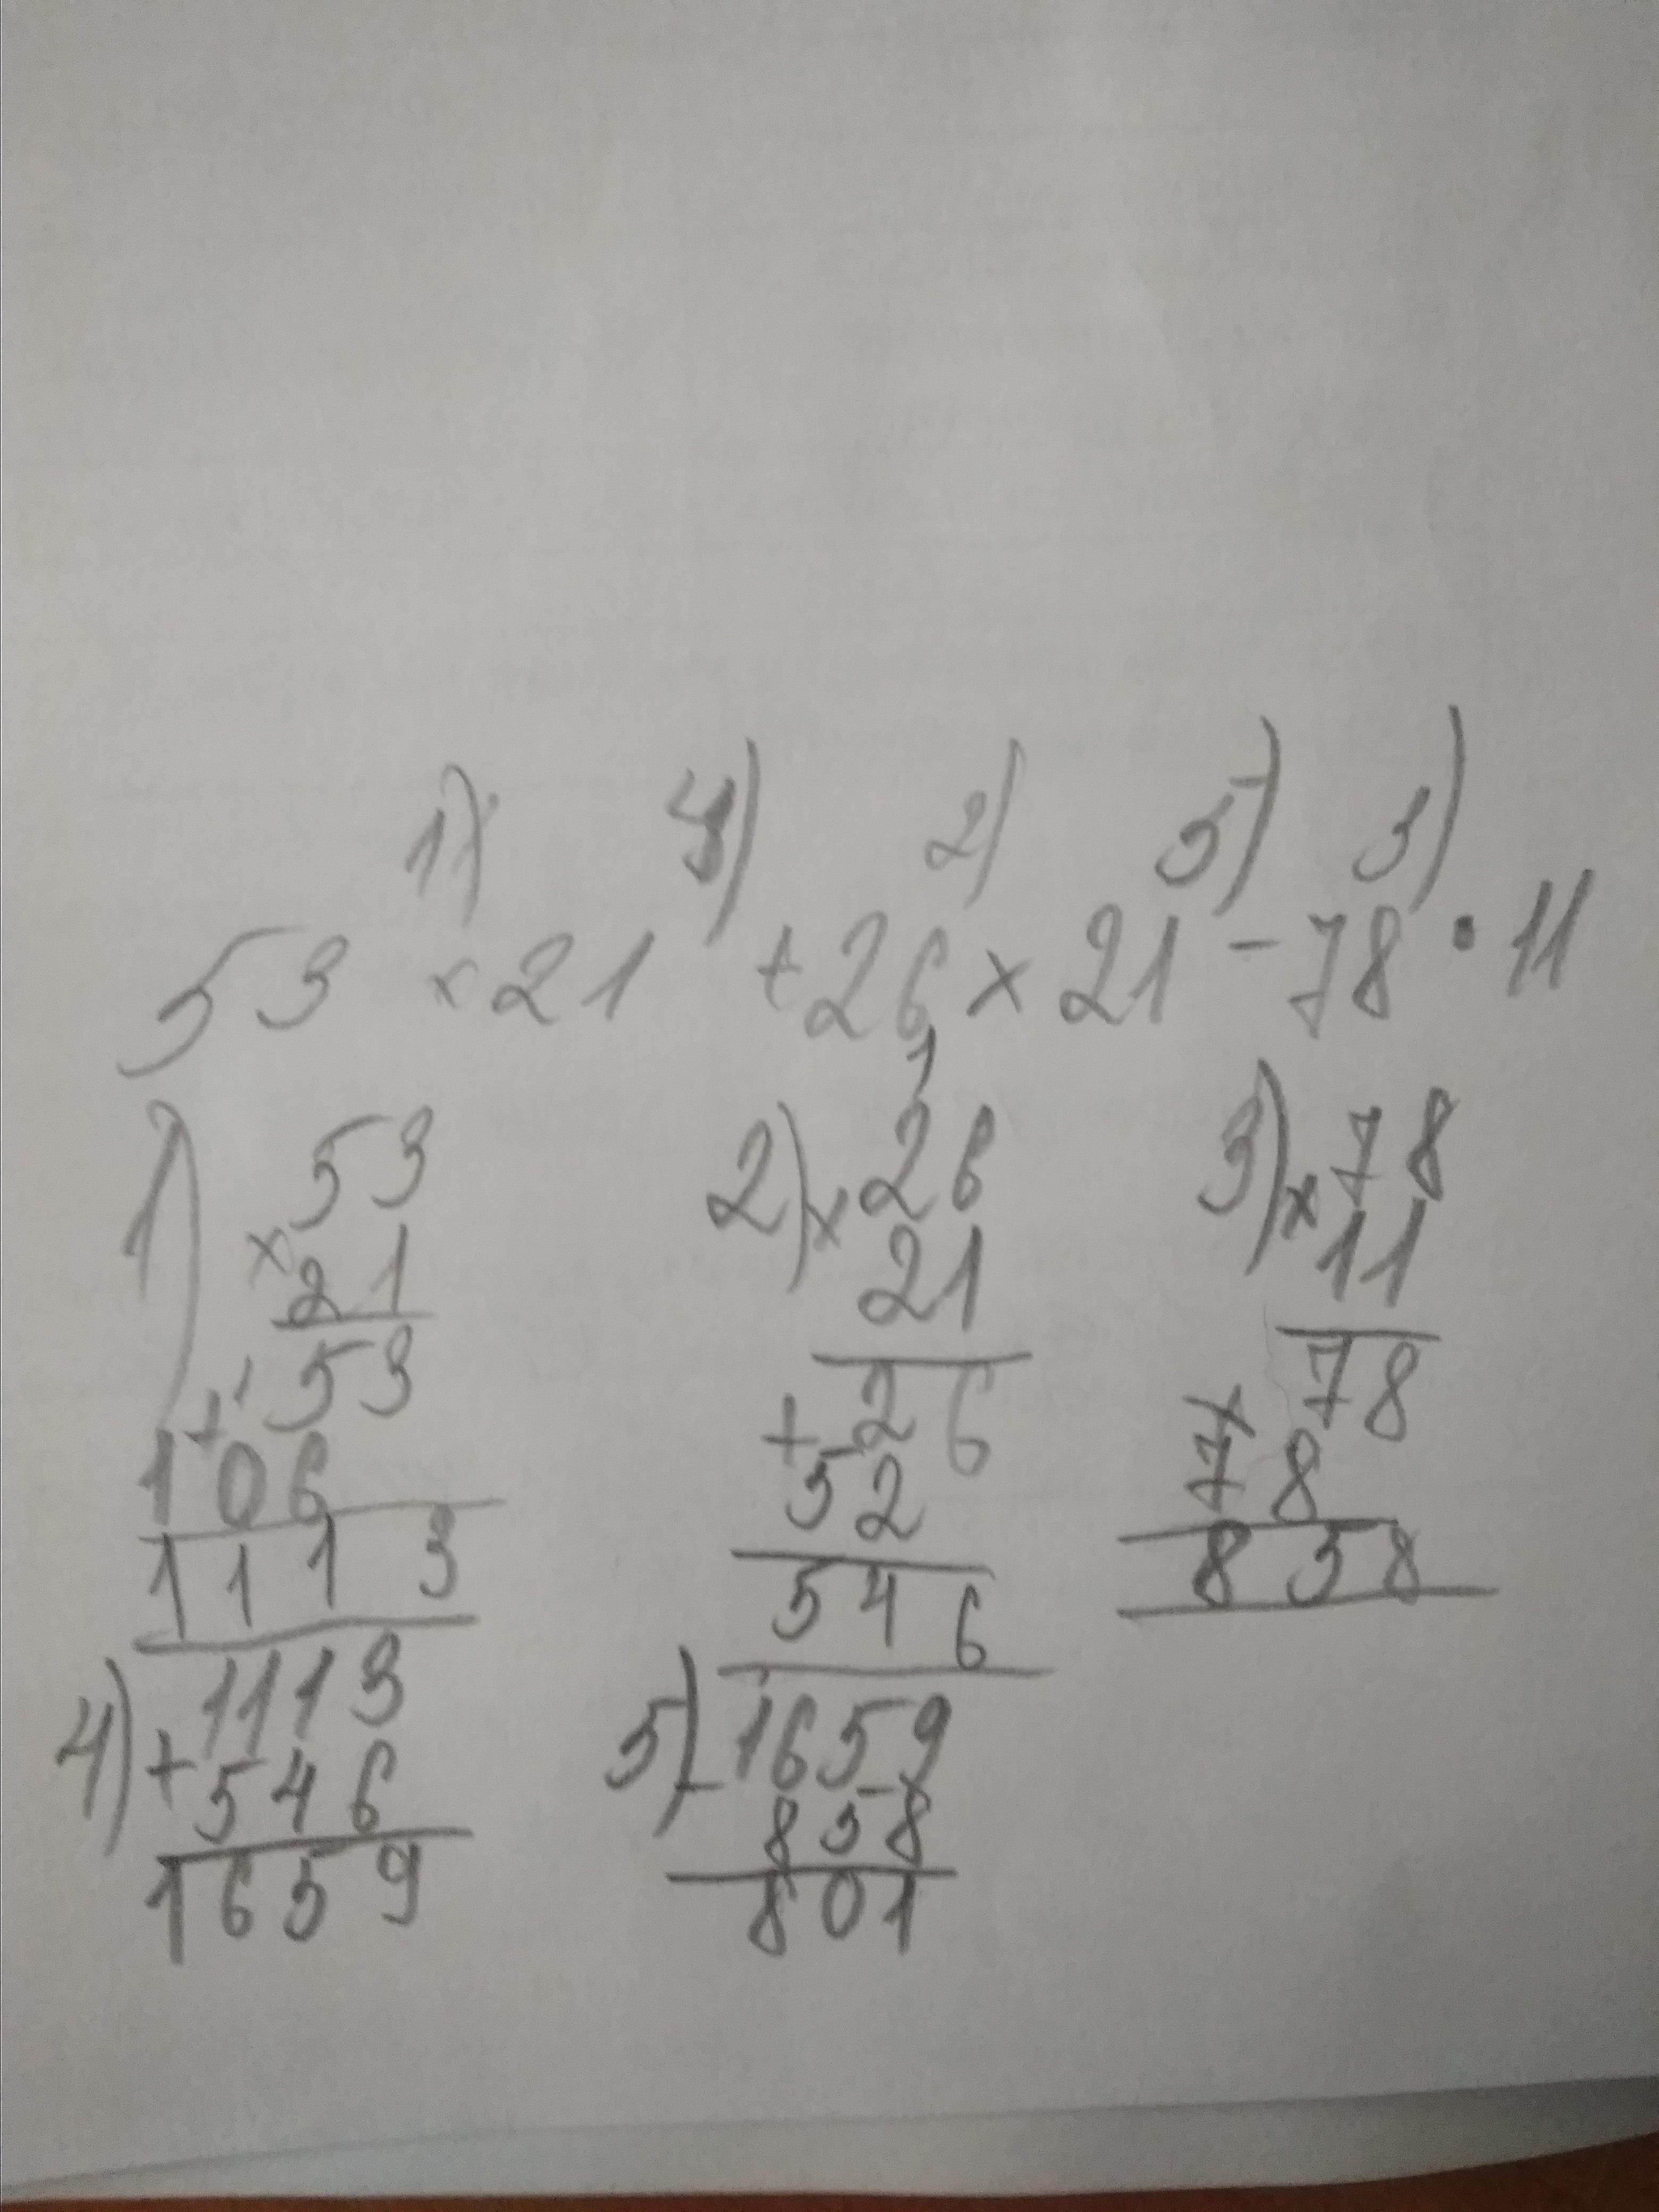 1) 4) 2) 5) 3)
53 × 21 + 26 × 21 - 78 · 11
1) 53
× 21
53
+ 106
1113
1
2) × 26
21
26
+ 52
546
3) × 78
11
78
+ 78
858
4) 1113
+ 546
1659
5) - 1659
858
801